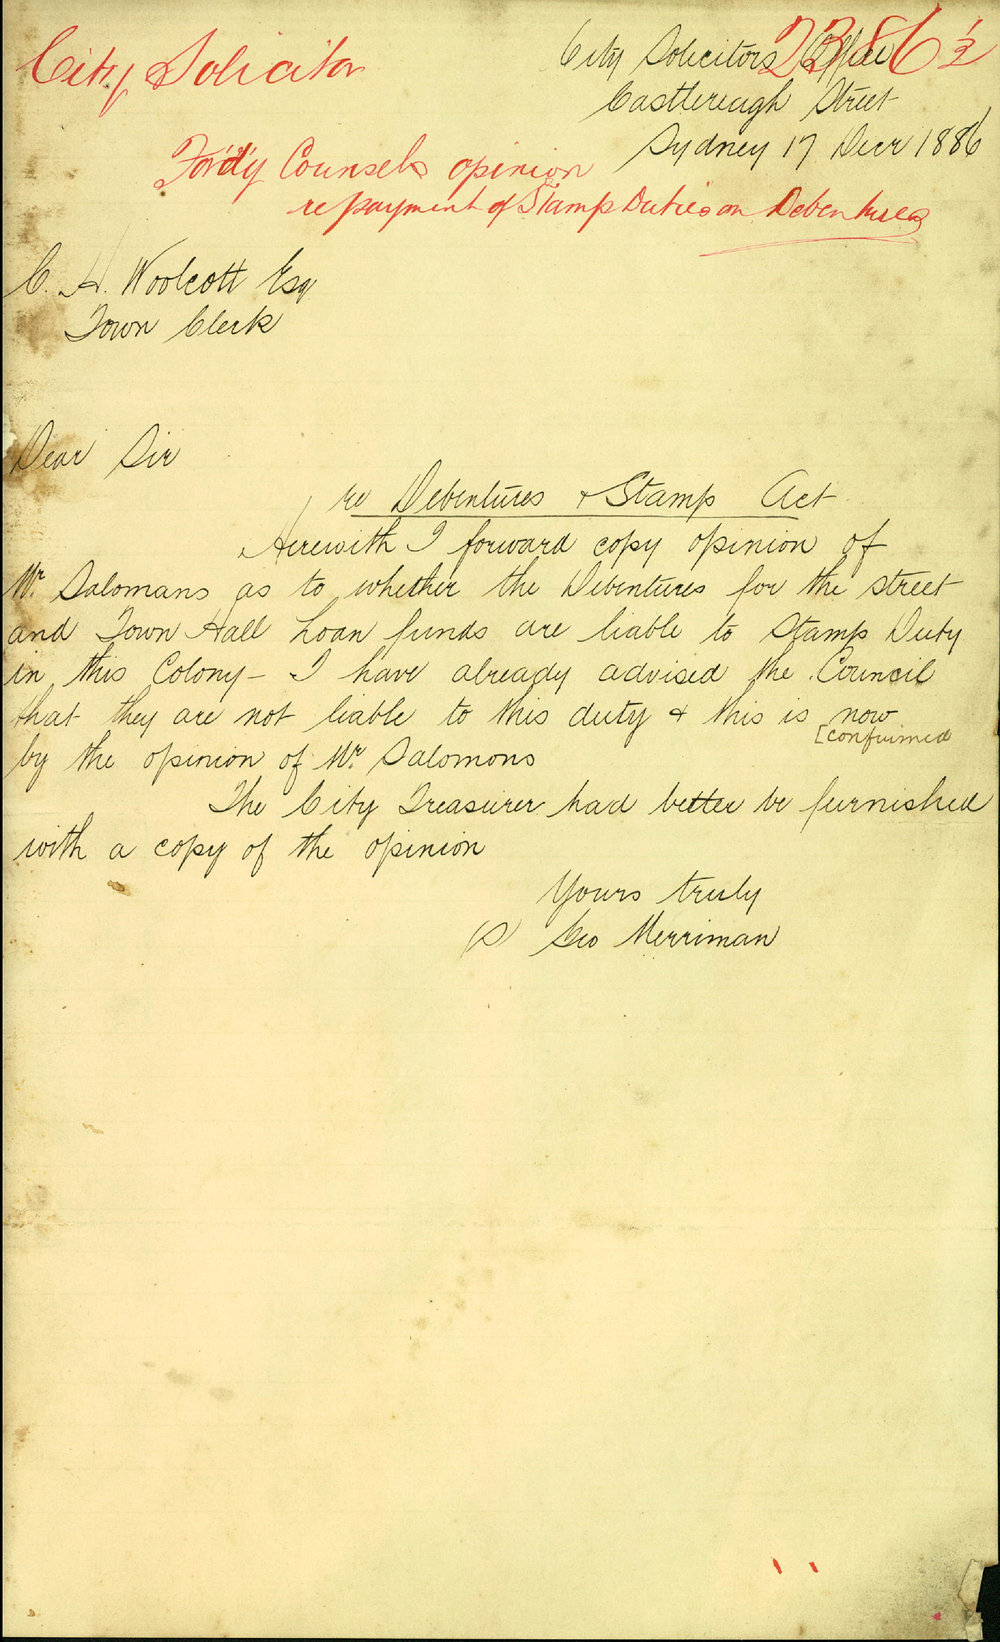 City Solicitor
2286 1/2
City Solicitors Office
Castlereagh Street
Sydney 17 Decr 1886
For'd'g Counsels opinion
re payment of Stamp Duties on Debentures
C. H. Woolcott Esq
Town Clerk
Dear Sir
re Debentures & Stamp Act
Herewith I forward copy opinion of
Mr. Salomans as to whether the Debentures for the street
and Town Hall Loan funds are liable to Stamp Duty
in this Colony - I have already advised the Council
that they are not liable to this duty & this is now
[confirmed
by the opinion of Mr. Salomons
The City Treasurer had better be furnished
with a copy of the opinion
Yours truly
(S) Geo Merriman